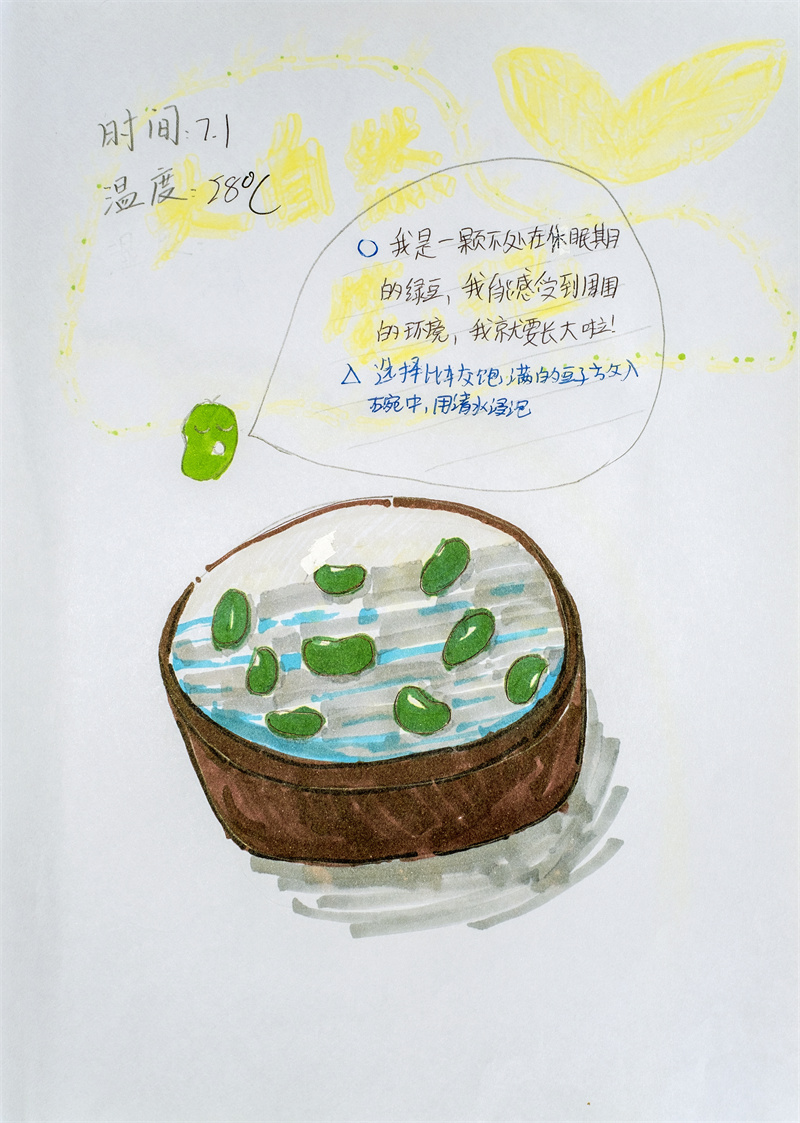 时间:7.1
温度:28℃
○ 我是一颗不处在休眠期
的绿豆,我能感受到周围
的环境,我就要长大啦!
△ 选择比较饱满的豆子放入
碗中,用清水浸泡